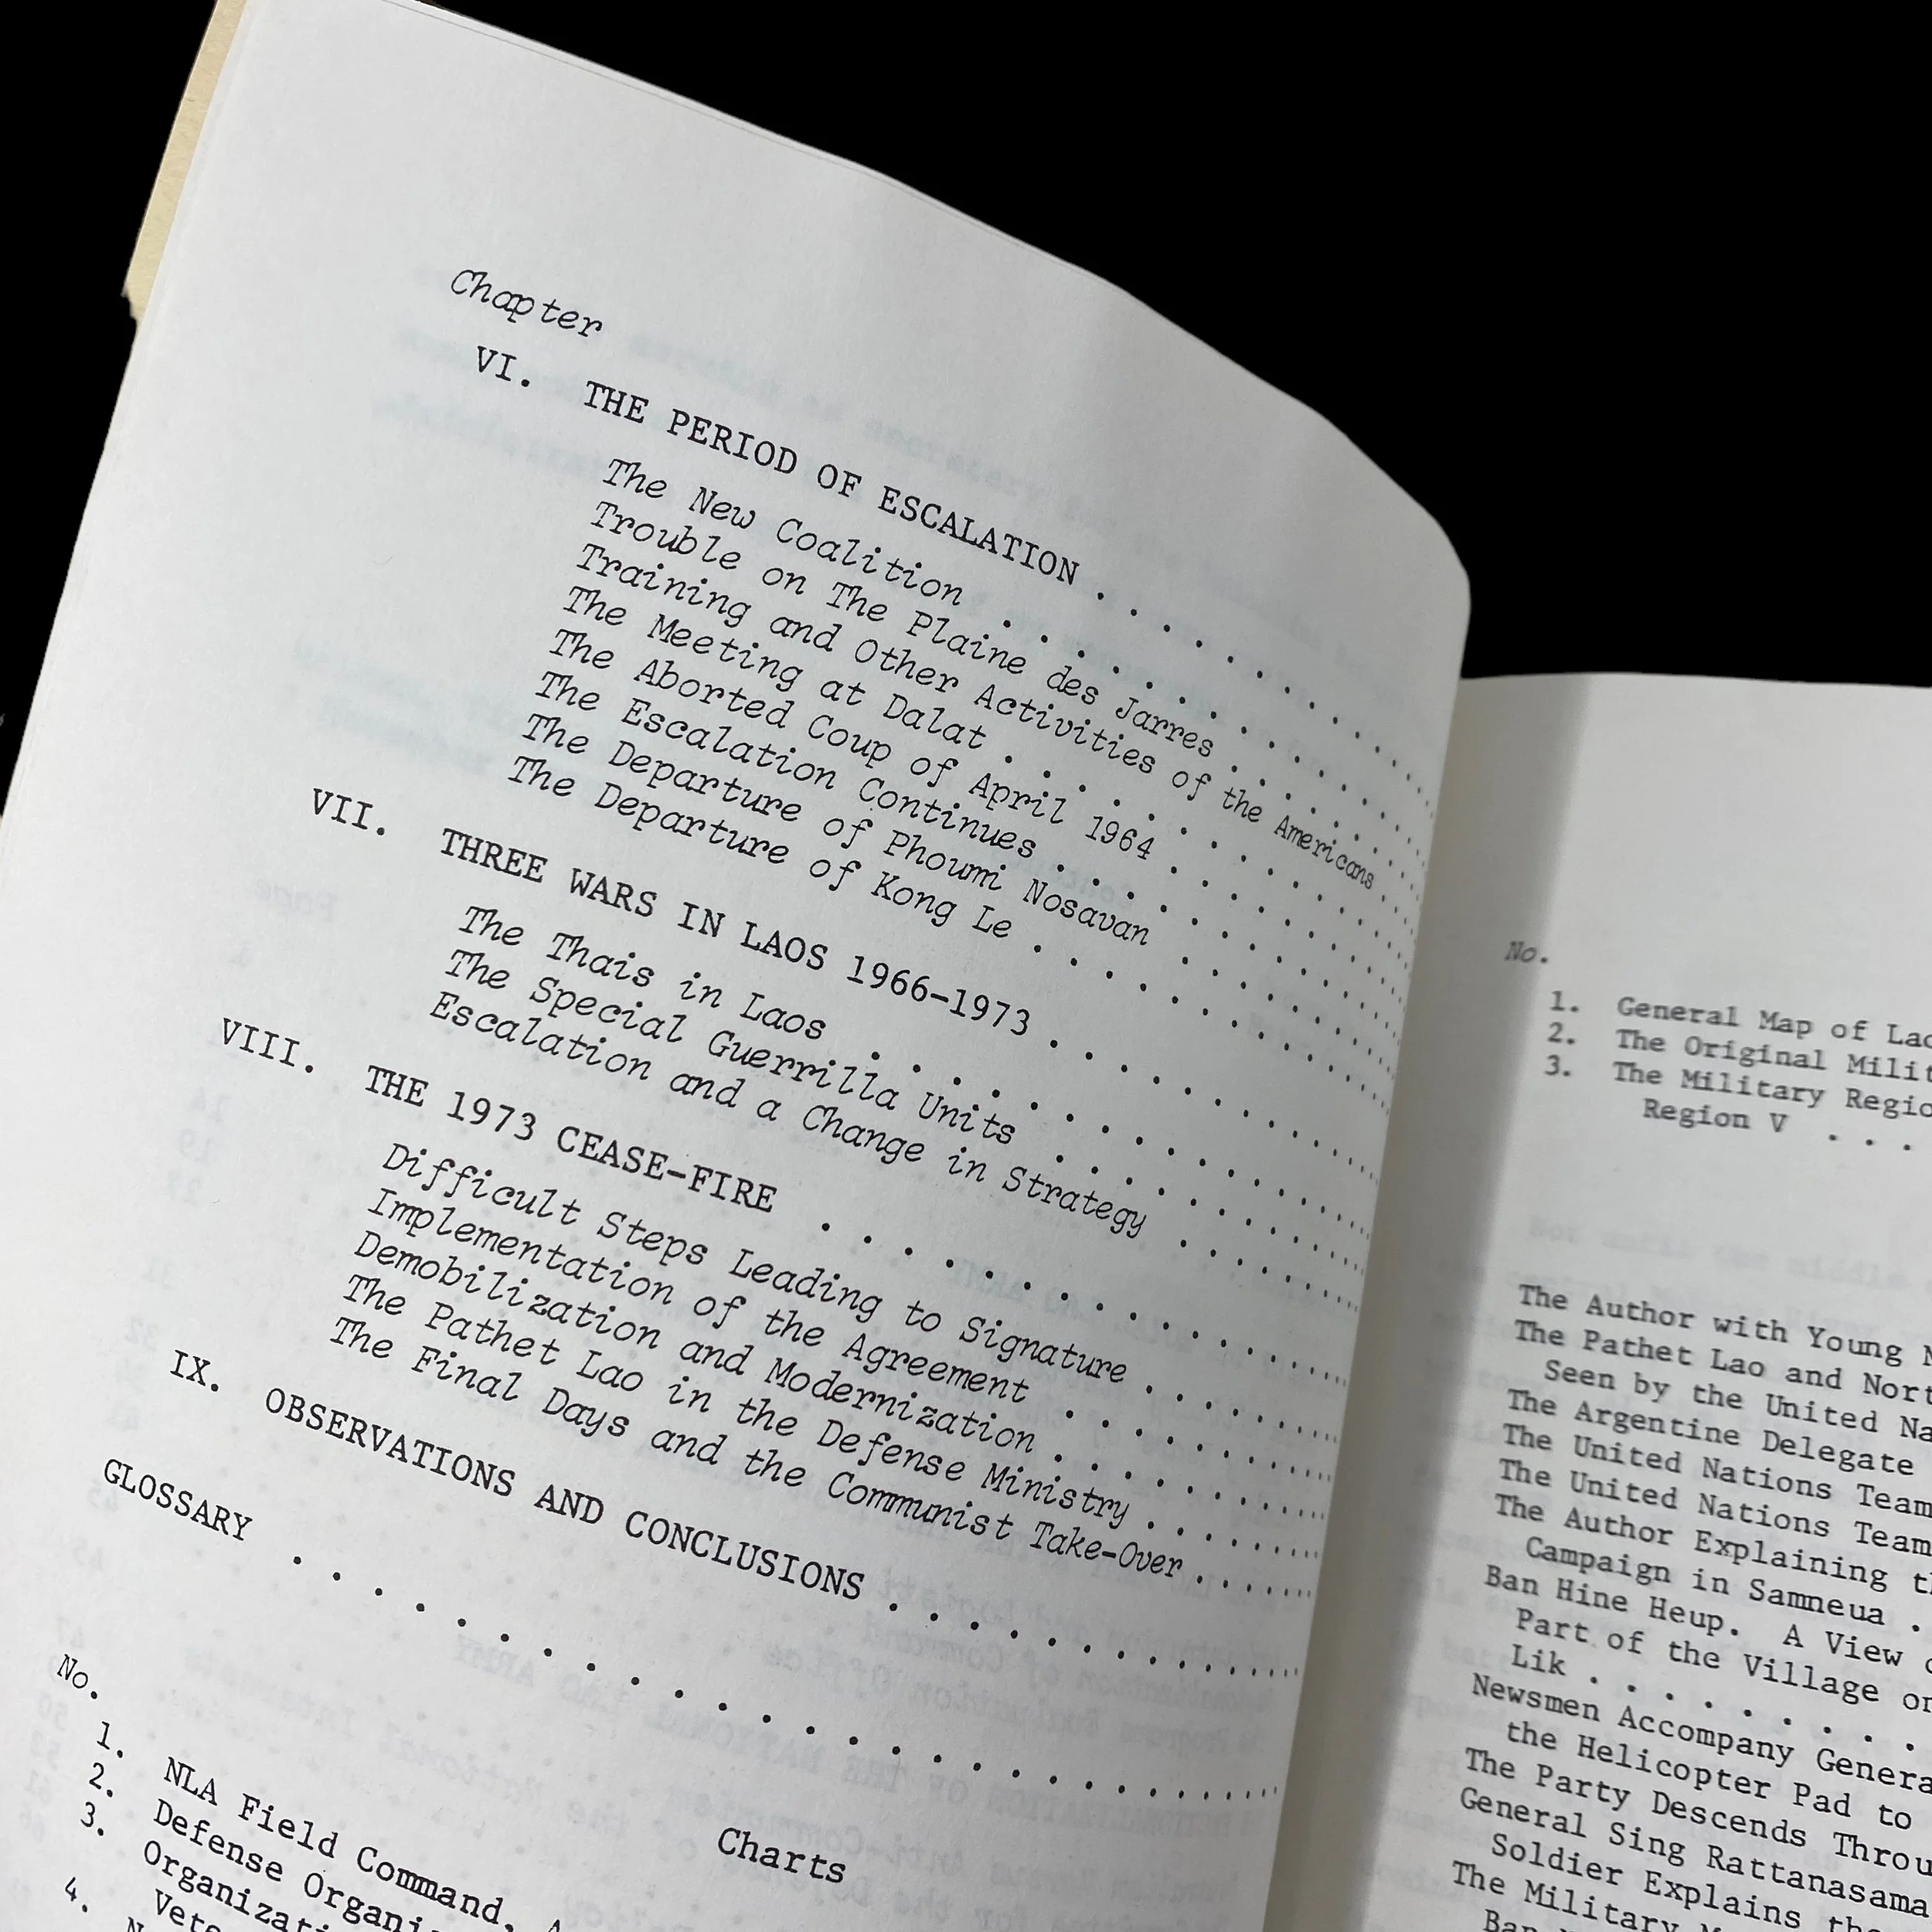 Chapter
VI. THE PERIOD OF ESCALATION . . . . . . . . . .
The New Coalition . . . . . . . . . .
Trouble on The Plaine des Jarres . . . . . . . .
Training and Other Activities of the Americans . . .
The Meeting at Dalat . . . . . . . . . .
The Aborted Coup of April 1964 . . . . . . . .
The Escalation Continues . . . . . . . . . .
The Departure of Phoumi Nosavan . . . . . . . .
The Departure of Kong Le . . . . . . . . . .
VII. THREE WARS IN LAOS 1966-1973 . . . . . . . . . .
The Thais in Laos . . . . . . . . . .
The Special Guerrilla Units . . . . . . . . . .
Escalation and a Change in Strategy . . . . . . . .
VIII. THE 1973 CEASE-FIRE . . . . . . . . . .
Difficult Steps Leading to Signature . . . . . . . .
Implementation of the Agreement . . . . . . . . . .
Demobilization and Modernization . . . . . . . . . .
The Pathet Lao in the Defense Ministry . . . . . . . .
The Final Days and the Communist Take-Over . . . . . .
IX. OBSERVATIONS AND CONCLUSIONS . . . . . . . . . .
GLOSSARY . . . . . . . . . . . . . . . . . . . .
Charts
No.
1. NLA Field Command,
2. Defense
3.
4.
No.
1. General Map of
2. The Original
3. The Military
Region V . . .
The Author with Young
The Pathet Lao and
Seen by the United
The Argentine Delegate
The United Nations Team
The United Nations Team
The Author Explaining
Campaign in Samneua .
Ban Hine Heup. A View
Part of the Village
Lik . . . . . . . .
Newsmen Accompany
the Helicopter Pad to
The Party Descends
General Sing
Soldier Explains
The Military
Ban